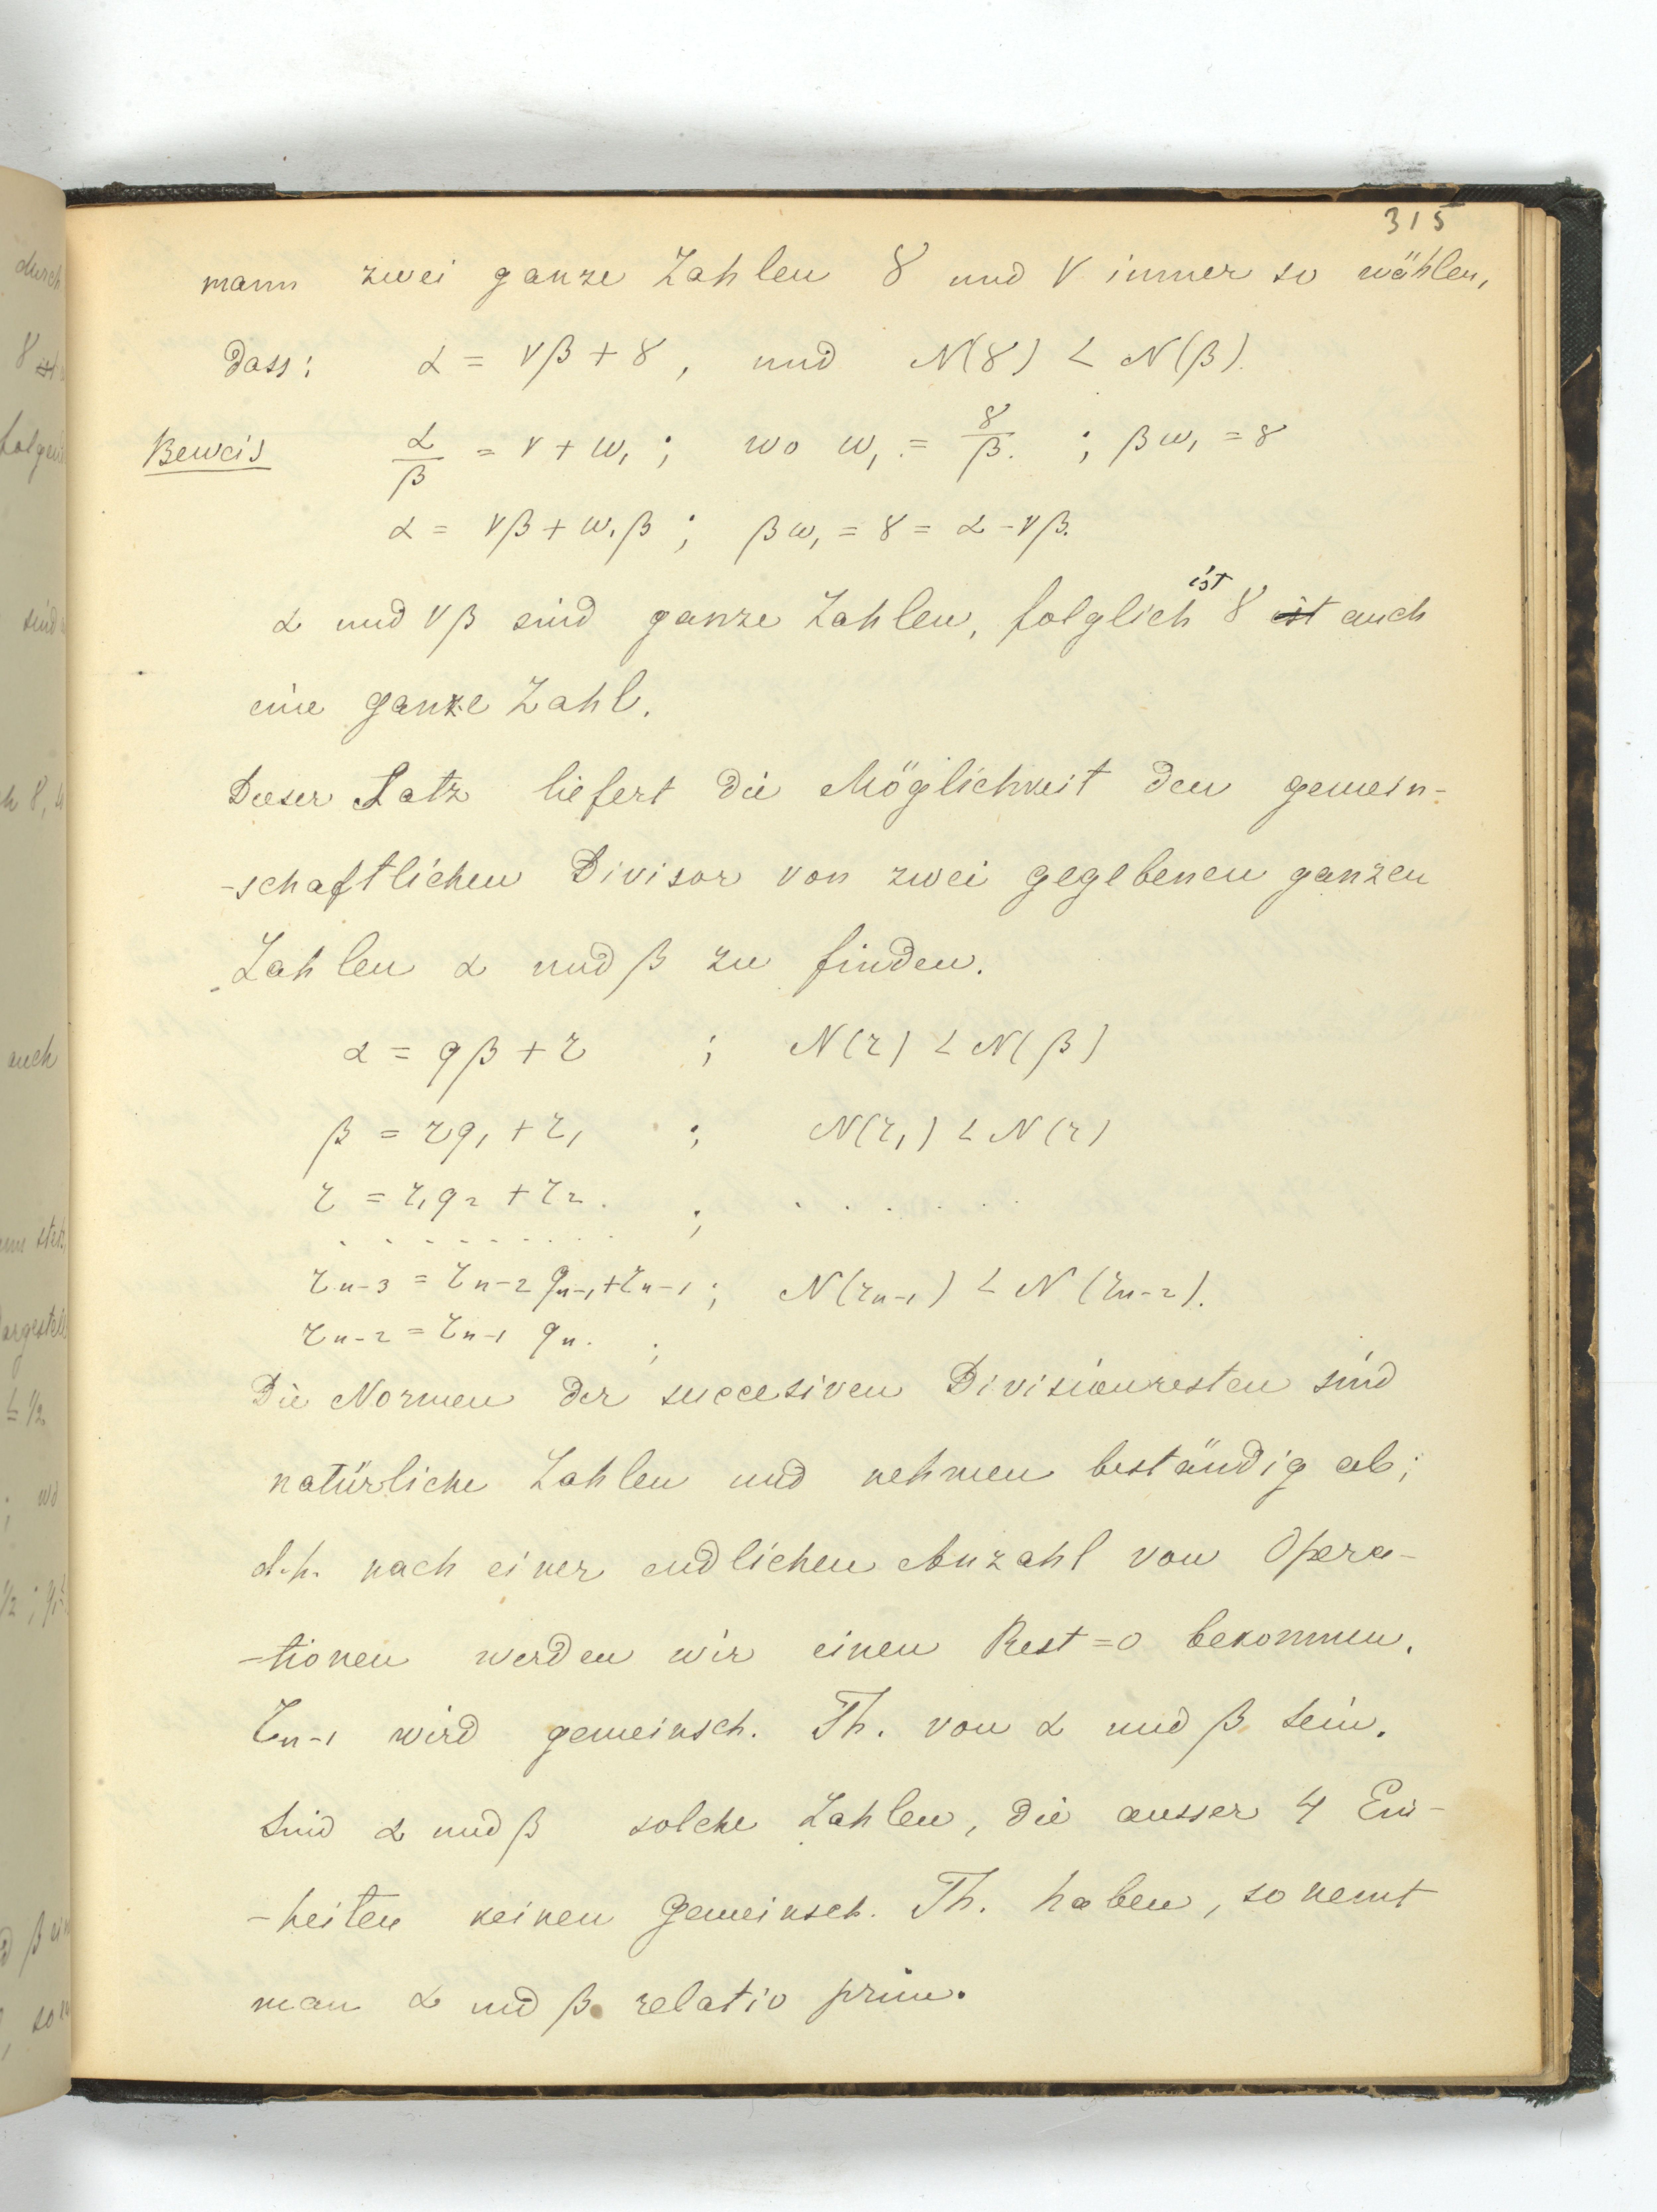 315
mann zwei ganze Zahlen γ und ν immer so wählen,
dass: α = νβ + γ, und N(γ) < N(β).
Beweis α/β = ν + ω₁; wo ω₁ = γ/β. ; βω₁ = γ
α = νβ + ω₁β; βω₁ = γ = α - νβ.
α und νβ sind ganze Zahlen, folglich ist γ ist auch
eine ganze Zahl.
Dieser Satz liefert die Möglichkeit den gemein-
-schaftlichen Divisor von zwei gegebenen ganzen
Zahlen α und β zu finden.
α = qβ + r ; N(r) < N(β)
β = rq₁ + r₁ ; N(r₁) < N(r)
r = r₁q₂ + r₂. ; . . . . . . .
. . . . . . . . . .
rₙ₋₃ = rₙ₋₂ qₙ₋₁ + rₙ₋₁ ; N(rₙ₋₁) < N(rₙ₋₂).
rₙ₋₂ = rₙ₋₁ qₙ. ;
Die Normen der succesiven Divisionresten sind
natürliche Zahlen und nehmen beständig ab;
d.h. nach einer endlichen Anzahl von Opera-
-tionen werden wir einen Rest = 0 bekommen.
rₙ₋₁ wird gemeinsch. Th. von α und β sein.
Sind α und β solche Zahlen, die ausser 4 Ein-
-heiten keinen gemeinsch. Th. haben, so nennt
man α und β relativ prim.